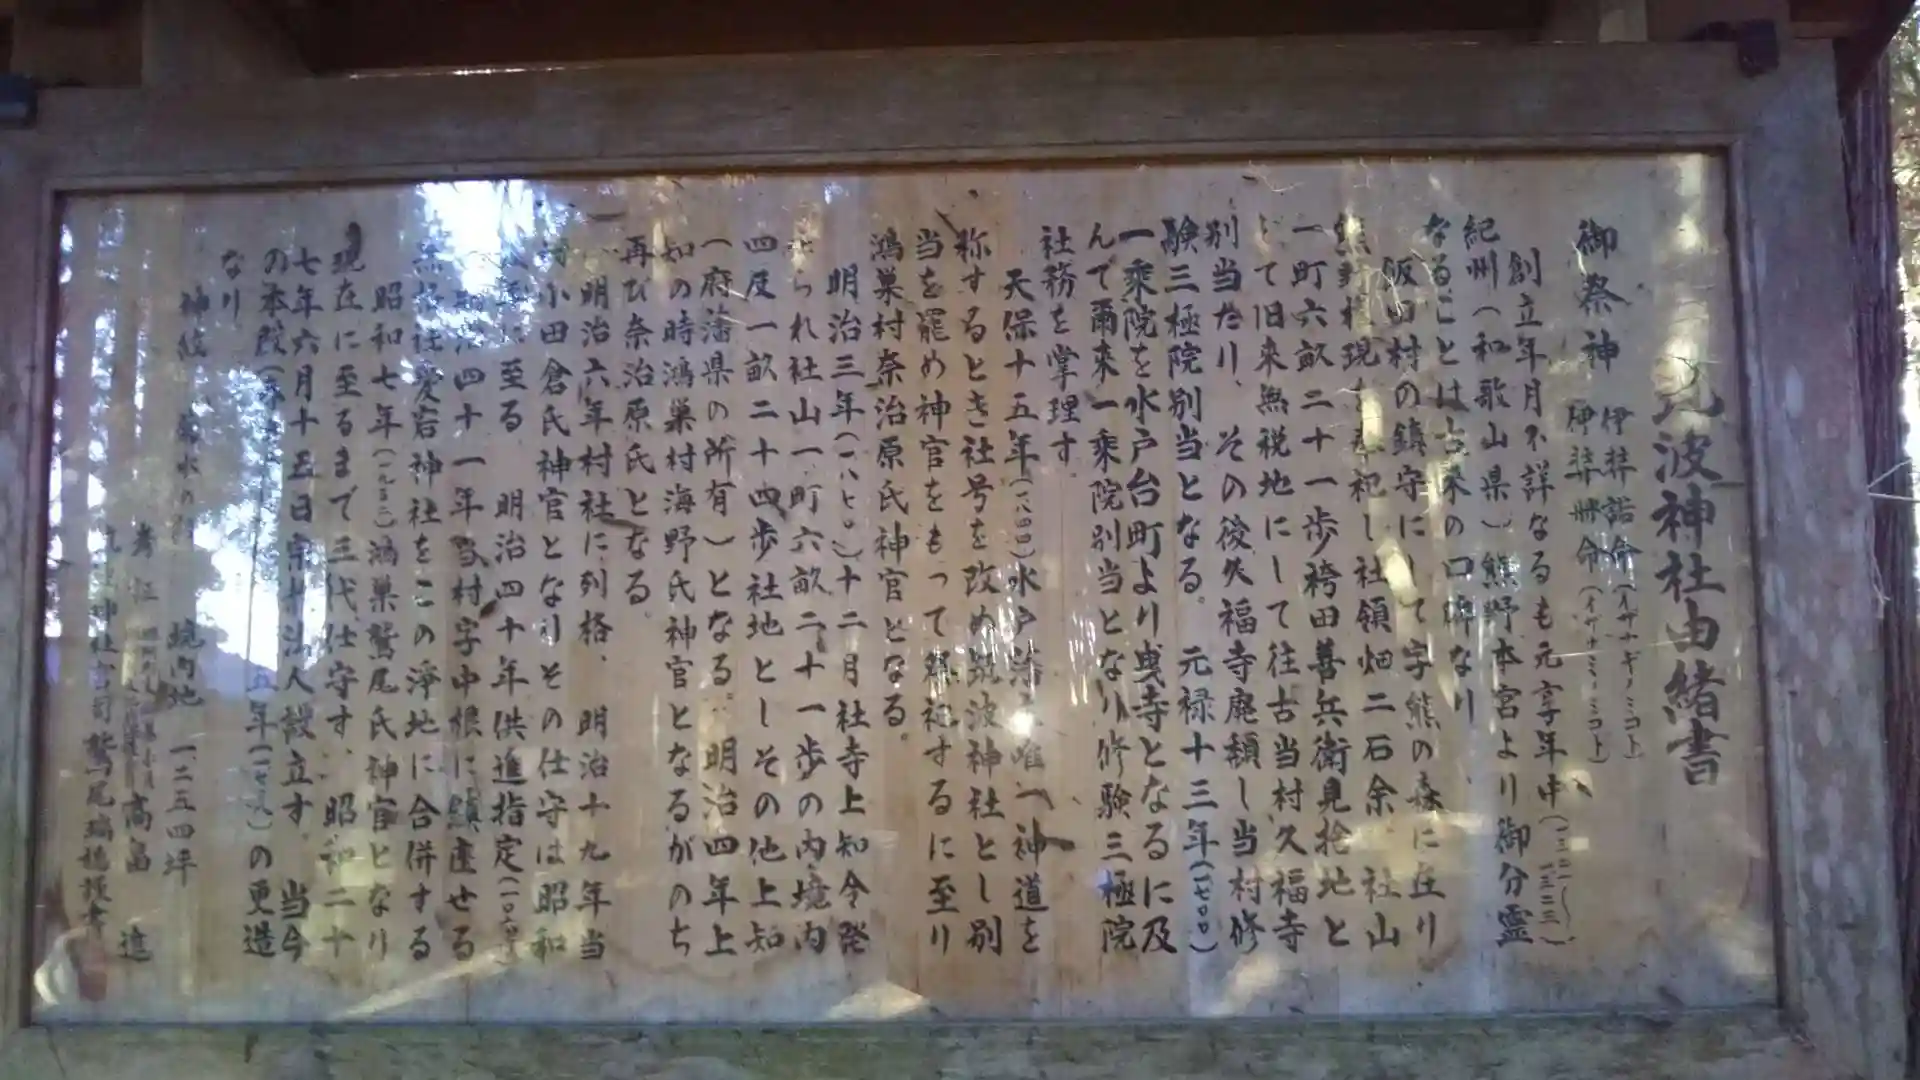 波神社由緒書
御祭神 伊弉諾命(イザナギノミコト)
伊弉冊命(イザナミノミコト)
創立年月不詳なるも元亨年中(一三二一〜一三二三)
紀州(和歌山県)熊野本宮より御分霊
なることは古来の口碑なり、
飯田村の鎮守にして字熊の森に在り
熊野権現を奉祀し社領畑二石余、社山
一町六畝二十一歩袴田善兵衛見捨地と
して旧来無税地にして往古当村久福寺
別当たり、その後久福寺廃頽し当村修
験三極院別当となる。元禄十三年(一七〇〇)
一乗院を水戸台町より曳寺となるに及
んで爾来一乗院別当となり修験三極院
社務を掌理す。
天保十五年(一八四四)水戸藩 唯一神道を
称するとき社号を改め筑波神社とし別
当を罷め神官をもって祭祀するに至り
鴻巣村奈治原氏神官となる。
明治三年(一八七〇)十二月社寺上知令発
せられ社山一町六畝二十一歩の内境内
四反一畝二十四歩社地としその他上知
(府藩県の所有)となる。明治四年上
知の時鴻巣村海野氏神官となるがのち
再び奈治原氏となる。
明治六年村社に列格、明治十九年当
村小田倉氏神官となりその仕守は昭和
に至る 明治四十年供進指定
明治四十一年当村字中根に鎮座せる
無格社愛宕神社をこの浄地に合併する
昭和七年(一九三二)鴻巣鷲尾氏神官となり
現在に至るまで三代仕守す、昭和二十
七年六月十五日宗教法人設立す。当今
の本殿 五年 の更造
なり
神紋 水 境内地 一、二五四坪
考証 高 進
神社宮司鷲尾 謹書